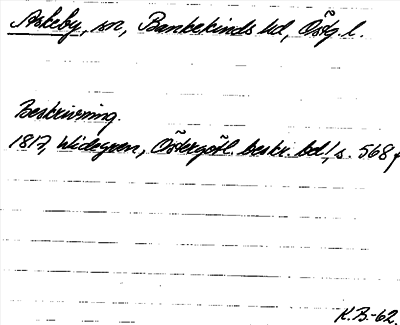 Askeby, sn, Bankekinds hd, Östg. l.
Beskrivning.
1817, Widegren, Östergötl. beskr. bd 1, s. 568 f
K.B.-62.